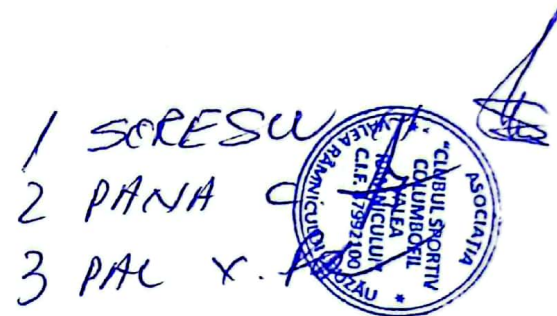 1 SERESCU
2 PANA C
3 PAL V.
ASOCIAȚIA
"CLUBUL SPORTIV
COLUMBOFIL
VALEA
RÂMNICULUI"
C.I.F. 37992100
* VALEA RÂMNICULUI BUZĂU *